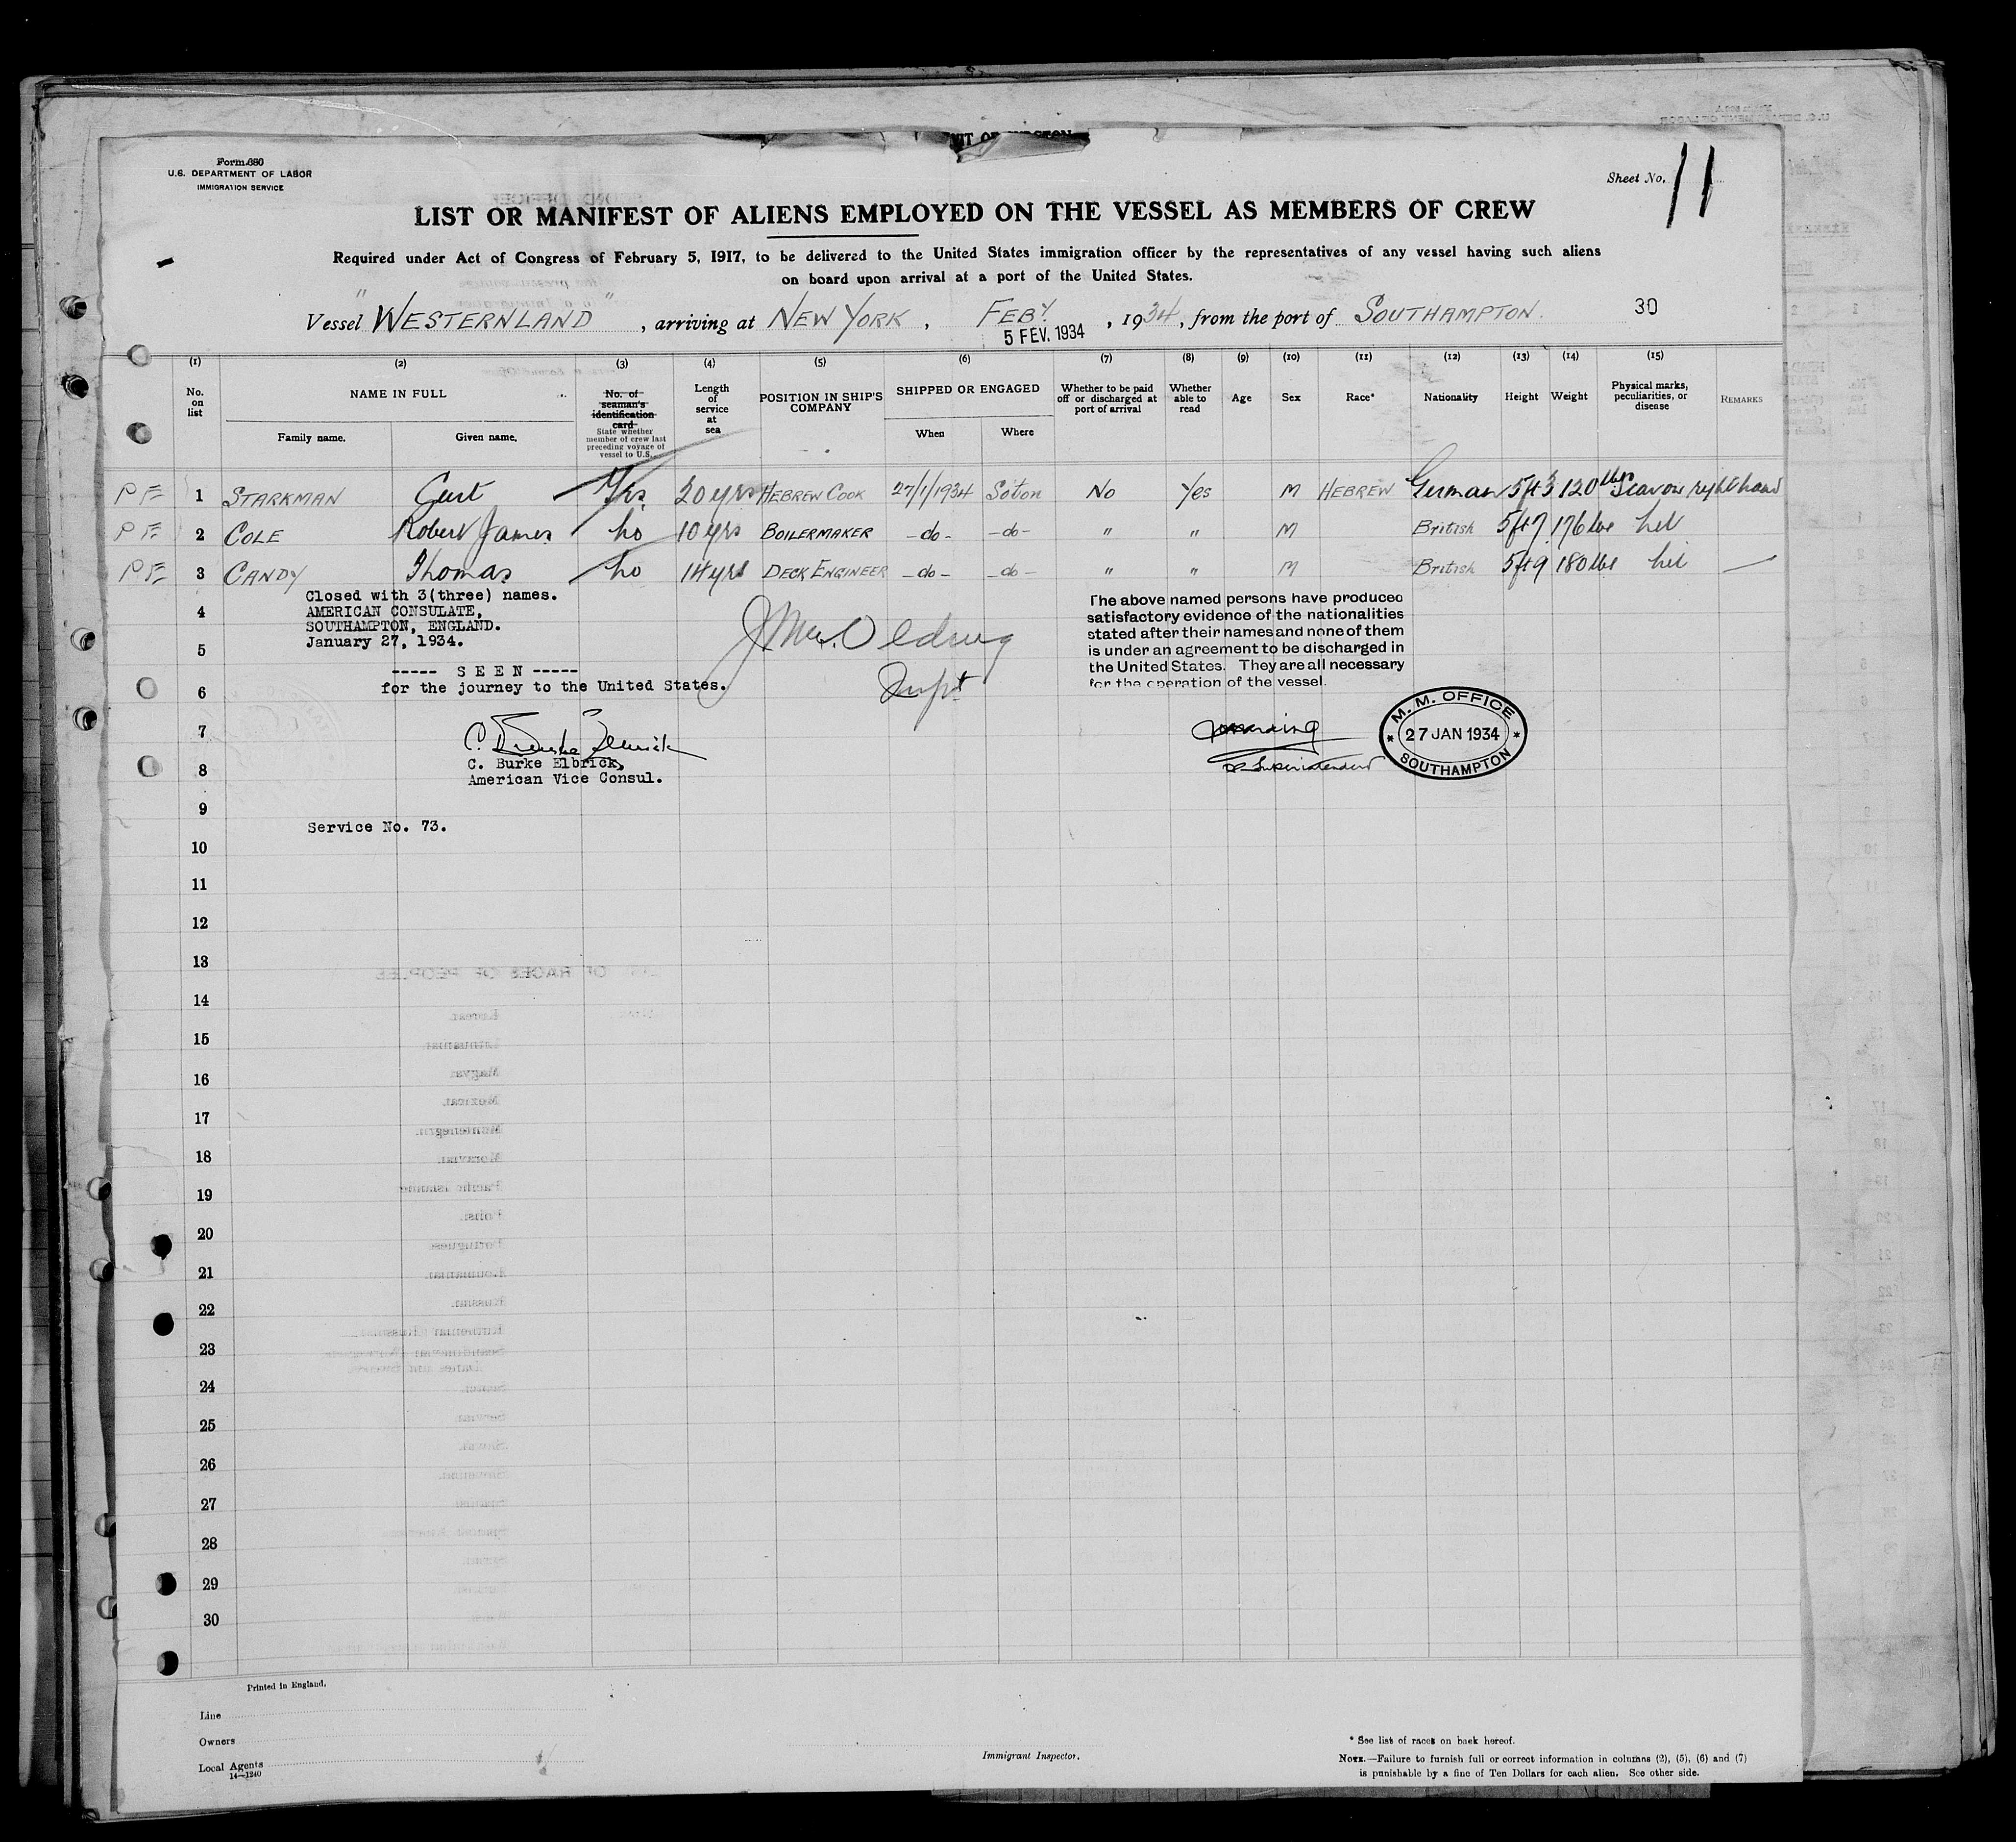 Form 680
U.S. DEPARTMENT OF LABOR
IMMIGRATION SERVICE
Sheet No. 11
LIST OR MANIFEST OF ALIENS EMPLOYED ON THE VESSEL AS MEMBERS OF CREW
Required under Act of Congress of February 5, 1917, to be delivered to the United States immigration officer by the representatives of any vessel having such aliens
on board upon arrival at a port of the United States.
Vessel "WESTERNLAND", arriving at NEW YORK, FEBY. , 1934, from the port of SOUTHAMPTON. 30
5 FÉV. 1934
(1) (2) (3) (4) (5) (6) (7) (8) (9) (10) (11) (12) (13) (14) (15)
No. on list
NAME IN FULL
Family name. Given name.
No. of seaman's identification card
State whether member of crew last preceding voyage of vessel to U.S.
Length of service at sea
POSITION IN SHIP'S COMPANY
SHIPPED OR ENGAGED
When Where
Whether to be paid off or discharged at port of arrival
Whether able to read
Age
Sex
Race*
Nationality
Height
Weight
Physical marks, peculiarities, or disease
REMARKS
PE 1 STARKMAN Curt Yes 20 yrs HEBREW COOK 27/1/1934 Soton No Yes M HEBREW German 5ft 3 120 lbs Scar on right hand
PE 2 COLE Robert James No 10 yrs BOILERMAKER -do- -do- " " M British 5ft 7 176 lbs nil
PE 3 CANDY Thomas No 14 yrs DECK ENGINEER -do- -do- " " M British 5ft 9 180 lbs nil —
Closed with 3(three) names.
AMERICAN CONSULATE,
SOUTHAMPTON, ENGLAND.
January 27, 1934.
----- S E E N -----
for the journey to the United States.
Supt
The above named persons have produced
satisfactory evidence of the nationalities
stated after their names and none of them
is under an agreement to be discharged in
the United States. They are all necessary
for the operation of the vessel.
Superintendent
M. M. OFFICE
* 27 JAN 1934 *
SOUTHAMPTON
C. Burke Elbrick
C. Burke Elbrick,
American Vice Consul.
Service No. 73.
4
5
6
7
8
9
10
11
12
13
14
15
16
17
18
19
20
21
22
23
24
25
26
27
28
29
30
Printed in England.
Line
Owners
Local Agents
14—1240
Immigrant Inspector.
* See list of races on back hereof.
NOTE.—Failure to furnish full or correct information in columns (2), (5), (6) and (7)
is punishable by a fine of Ten Dollars for each alien. See other side.